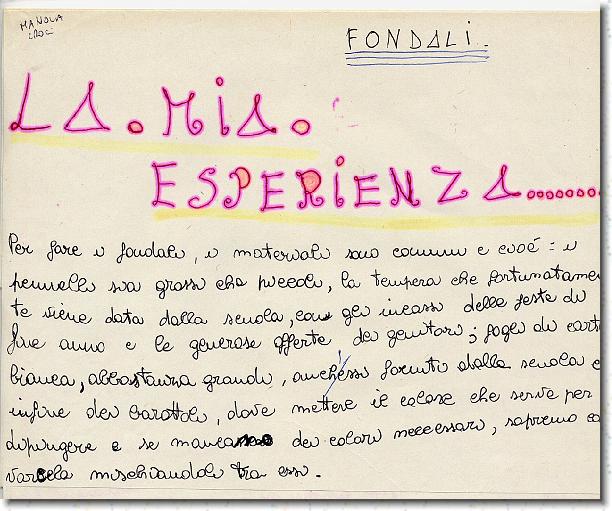 MANOLA
CROCI
FONDALI.
LA.MIA.
ESPERIENZA.........
Per fare i fondali, i materiali sono comuni e cioé: i
pennelli sia grossi che piccoli, la tempera che fortunatamen
te viene data dalla scuola, con gli incassi delle feste di
fine anno e le generose offerte dei genitori; fogli di cart
bianca, abbastanza grandi, anch'essi forniti dalla scuola e
infine dei barattoli, dove mettere il colore che serve per
dipingere e se mancano dei colori necessari, sapremo co
varcela mischiandoli tra essi.